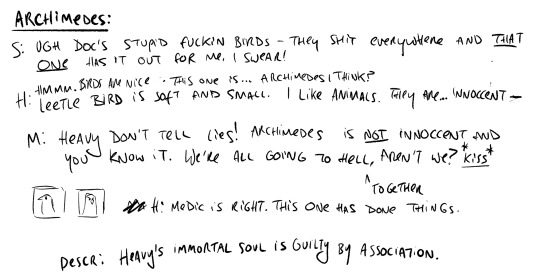 ARCHIMEDES:
S: UGH DOC'S STUPID FUCKIN BIRDS - THEY SHIT EVERYWHERE AND THAT
ONE HAS IT OUT FOR ME, I SWEAR!
HMMM. BIRDS ARE NICE. THIS ONE IS... ARCHIMEDES I THINK?
H: LEETLE BIRD IS SOFT AND SMALL. I LIKE ANIMALS. THEY ARE... INNOCCENT -
M: HEAVY DON'T TELL LIES! ARCHIMEDES IS NOT INNOCCENT AND
YOU KNOW IT. WE'RE ALL GOING TO HELL, AREN'T WE? *KISS*
^ TOGETHER
H: MEDIC IS RIGHT. THIS ONE HAS DONE THINGS.
DESCR: HEAVY'S IMMORTAL SOUL IS GUILTY BY ASSOCIATION.